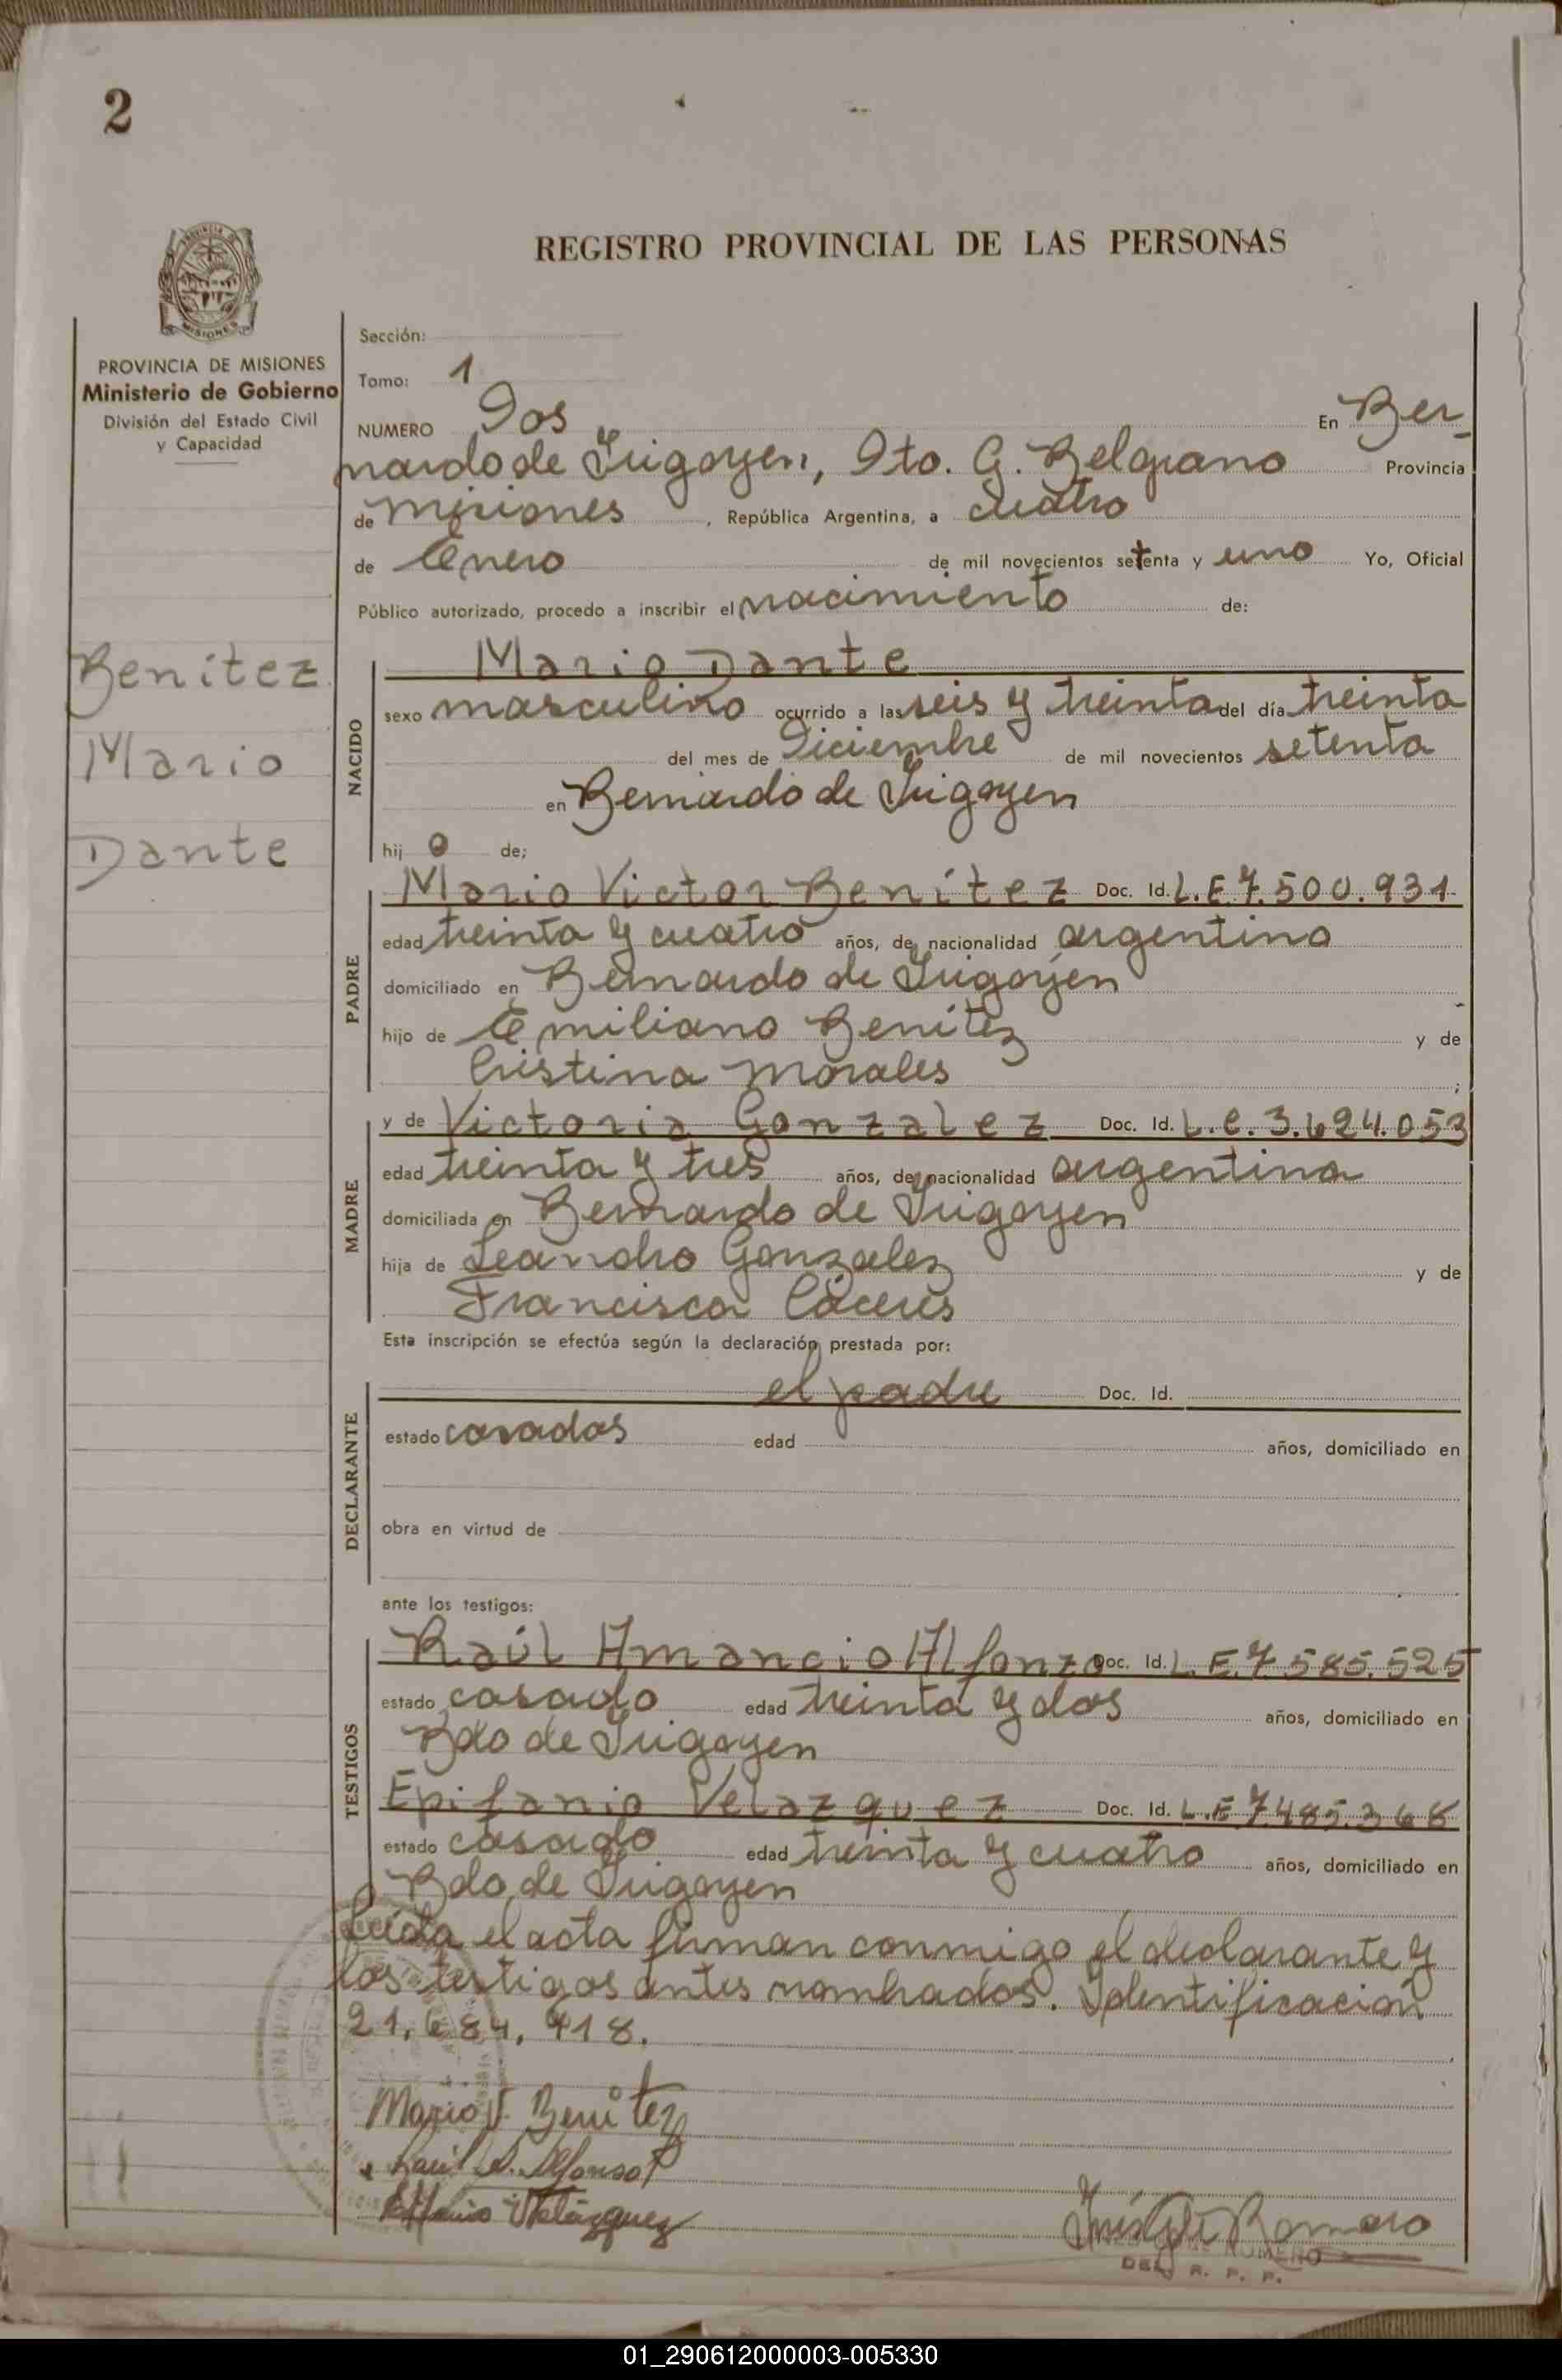 2
REGISTRO PROVINCIAL DE LAS PERSONAS
PROVINCIA DE MISIONES
Ministerio de Gobierno
División del Estado Civil
y Capacidad
Sección:
Tomo: 1
NUMERO Dos En Ber-
nardo de Irigoyen, Dto. G. Belgrano Provincia
de Misiones , República Argentina, a cuatro
de Enero de mil novecientos setenta y uno Yo, Oficial
Público autorizado, procedo a inscribir el nacimiento de:
Benítez
Mario
Dante
NACIDO
Mario Dante
sexo masculino ocurrido a las seis y treinta del día treinta
del mes de Diciembre de mil novecientos setenta
en Bernardo de Irigoyen
hij o de;
PADRE
Mario Victor Benítez Doc. Id. L.E 7.500.931
edad treinta y cuatro años, de nacionalidad argentino
domiciliado en Bernardo de Irigoyen
hijo de Emiliano Benítez y de
Cristina Morales ;
MADRE
y de Victoria Gonzalez Doc. Id. L.C. 3.624.053
edad treinta y tres años, de nacionalidad argentina
domiciliada en Bernardo de Irigoyen
hija de Leandro Gonzalez y de
Francisca Cáceres
Esta inscripción se efectúa según la declaración prestada por:
DECLARANTE
el padre Doc. Id.
estado casados edad años, domiciliado en
obra en virtud de
ante los testigos:
TESTIGOS
Raúl Amancio Alfonzo Doc. Id. L.E. 7.585.525
estado casado edad treinta y dos años, domiciliado en
Bdo de Irigoyen
Epifanio Velazquez Doc. Id. L.E 7.485.368
estado casado edad treinta y cuatro años, domiciliado en
Bdo de Irigoyen
Leída el acta firman conmigo el declarante y
los testigos antes nombrados. Identificación
21.684.918.
Mario V. Benítez
Raúl A. Alfonso
Epifanio Velázquez
Romero
DEL R. P. P.
01_290612000003-005330